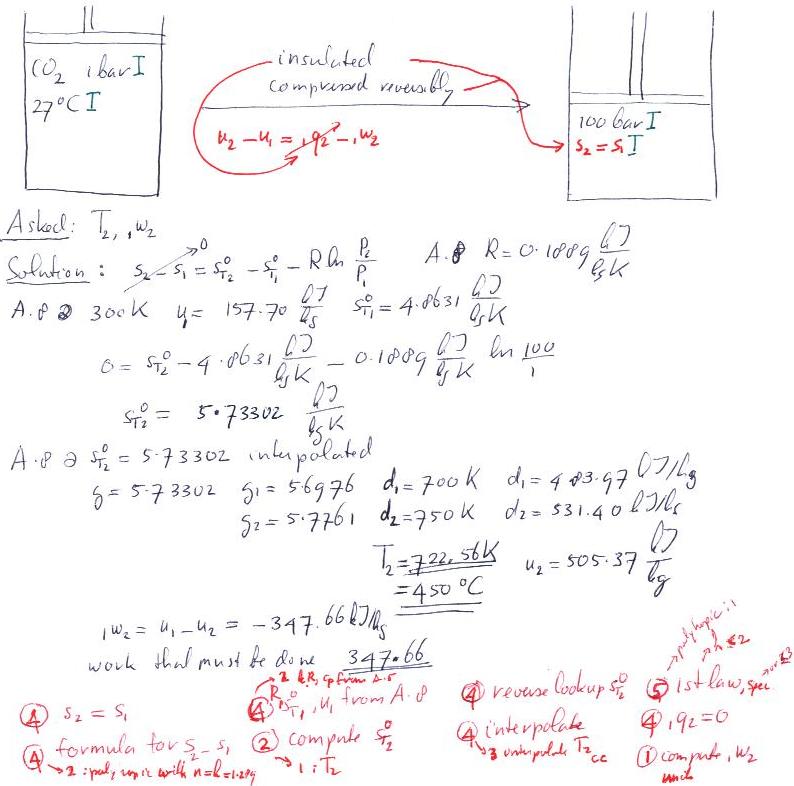 CO₂ 1 bar I
27°C I
insulated
compressed reversibly
u₂ − u₁ = ₁q₂ − ₁w₂
100 bar I
s₂ = s₁ I
Asked: T₂, ₁w₂
Solution: s₂ − s₁ = s°T₂ − s°T₁ − R ln P₂/P₁ 0 A.8 R = 0.1889 kJ/kg K
A.8 @ 300K u₁ = 157.70 kJ/kg s°T₁ = 4.8631 kJ/kg K
0 = s°T₂ − 4.8631 kJ/kg K − 0.1889 kJ/kg K ln 100/1
s°T₂ = 5.73302 kJ/kg K
A.8 @ s°T₂ = 5.73302 interpolated
g = 5.73302 g₁ = 5.6976 d₁ = 700K d₁ = 483.97 kJ/kg
g₂ = 5.7761 d₂ = 750K d₂ = 531.40 kJ/kg
T₂ = 722.56K u₂ = 505.37 kJ/kg
= 450 °C
₁w₂ = u₁ − u₂ = −347.66 kJ/kg
work that must be done 347.66
④ s₂ = s₁
④ formula for s₂ − s₁
→ 2: polytropic with n=k=1.289
→ 2 k,R, cp from A.5
④ R, s°T₁, u₁ from A.8
② compute s°T₂
→ 1: T₂
④ reverse lookup s°T₂
④ interpolate
→ 3 T₂
polytropic: 1
⑤ 1st law,
④ ₁q₂ = 0
① compute ₁w₂